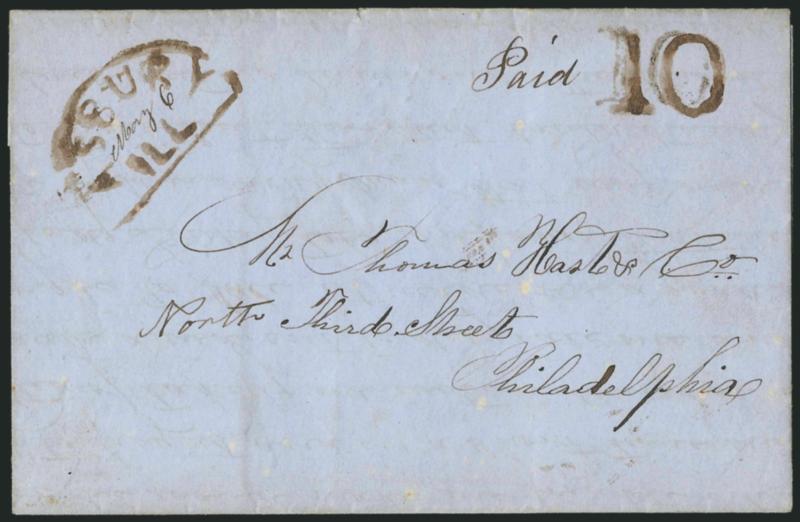 SBURY
May 6
ILL
Paid 10
Mr Thomas Hart & Co
North Third Street
Philadelphia